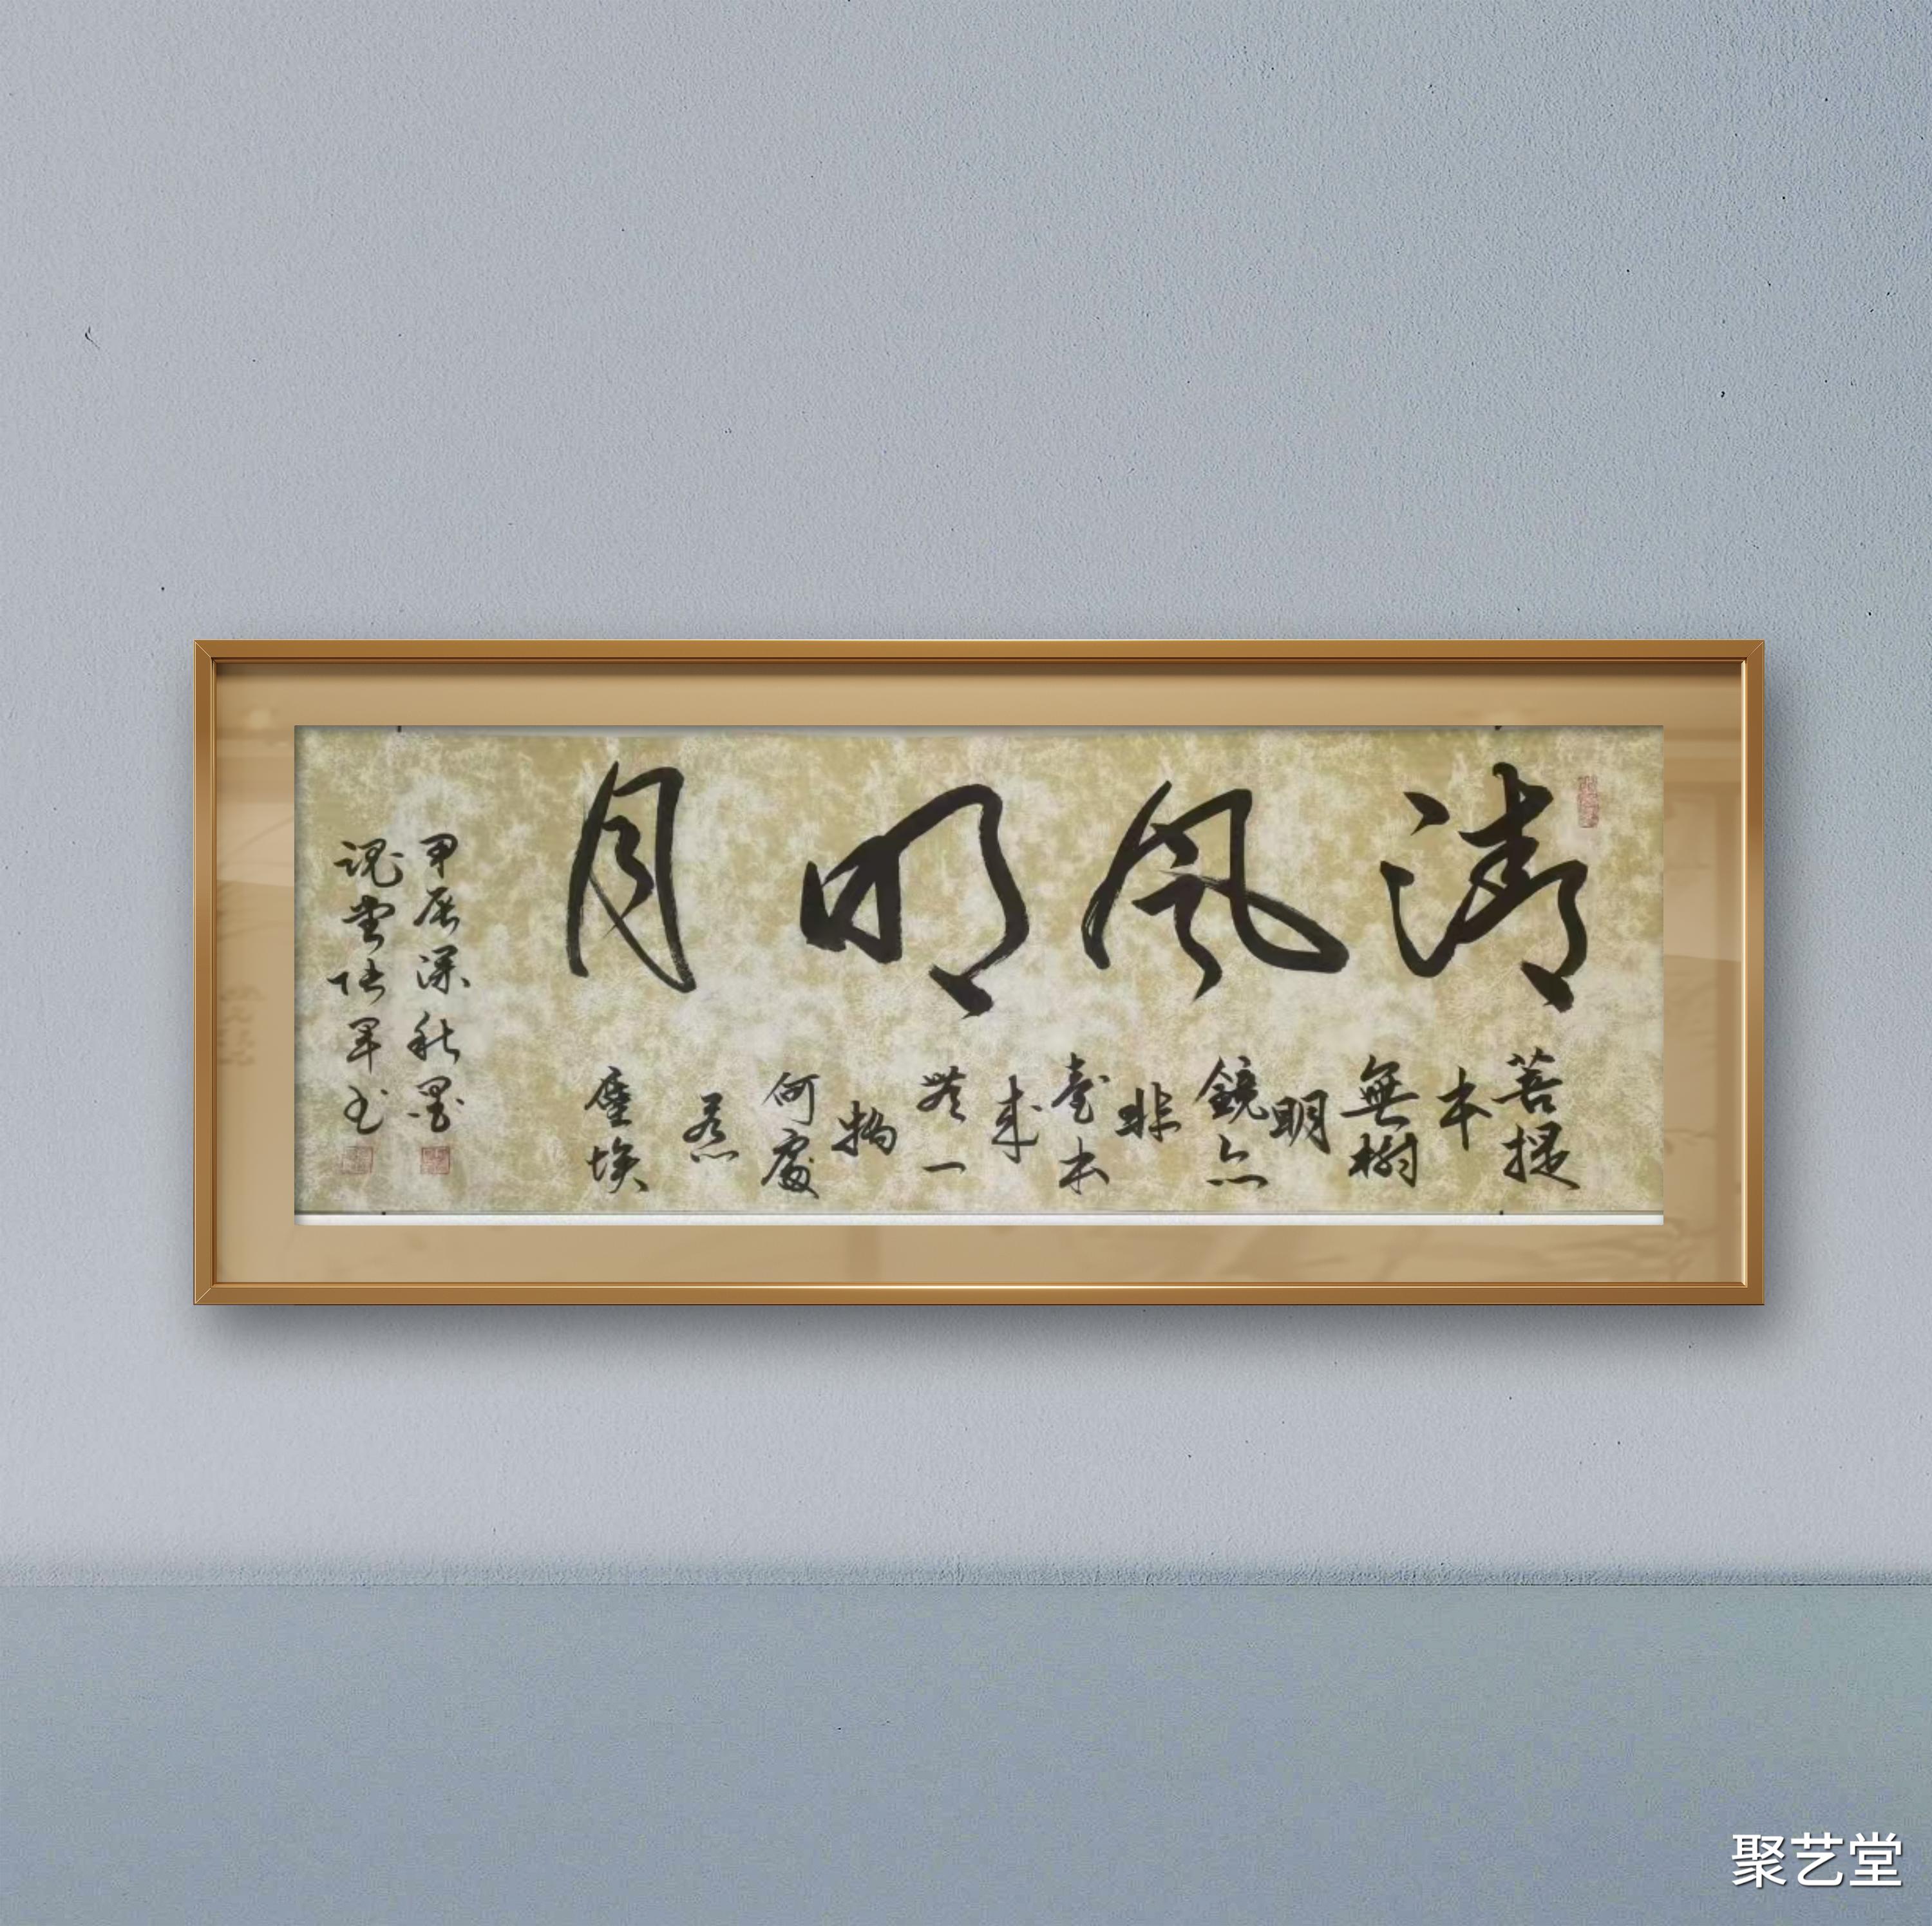 清風明月
菩提本無樹明鏡亦非臺本來無一物何處惹塵埃
甲辰深秋墨
魂堂張軍书
聚艺堂